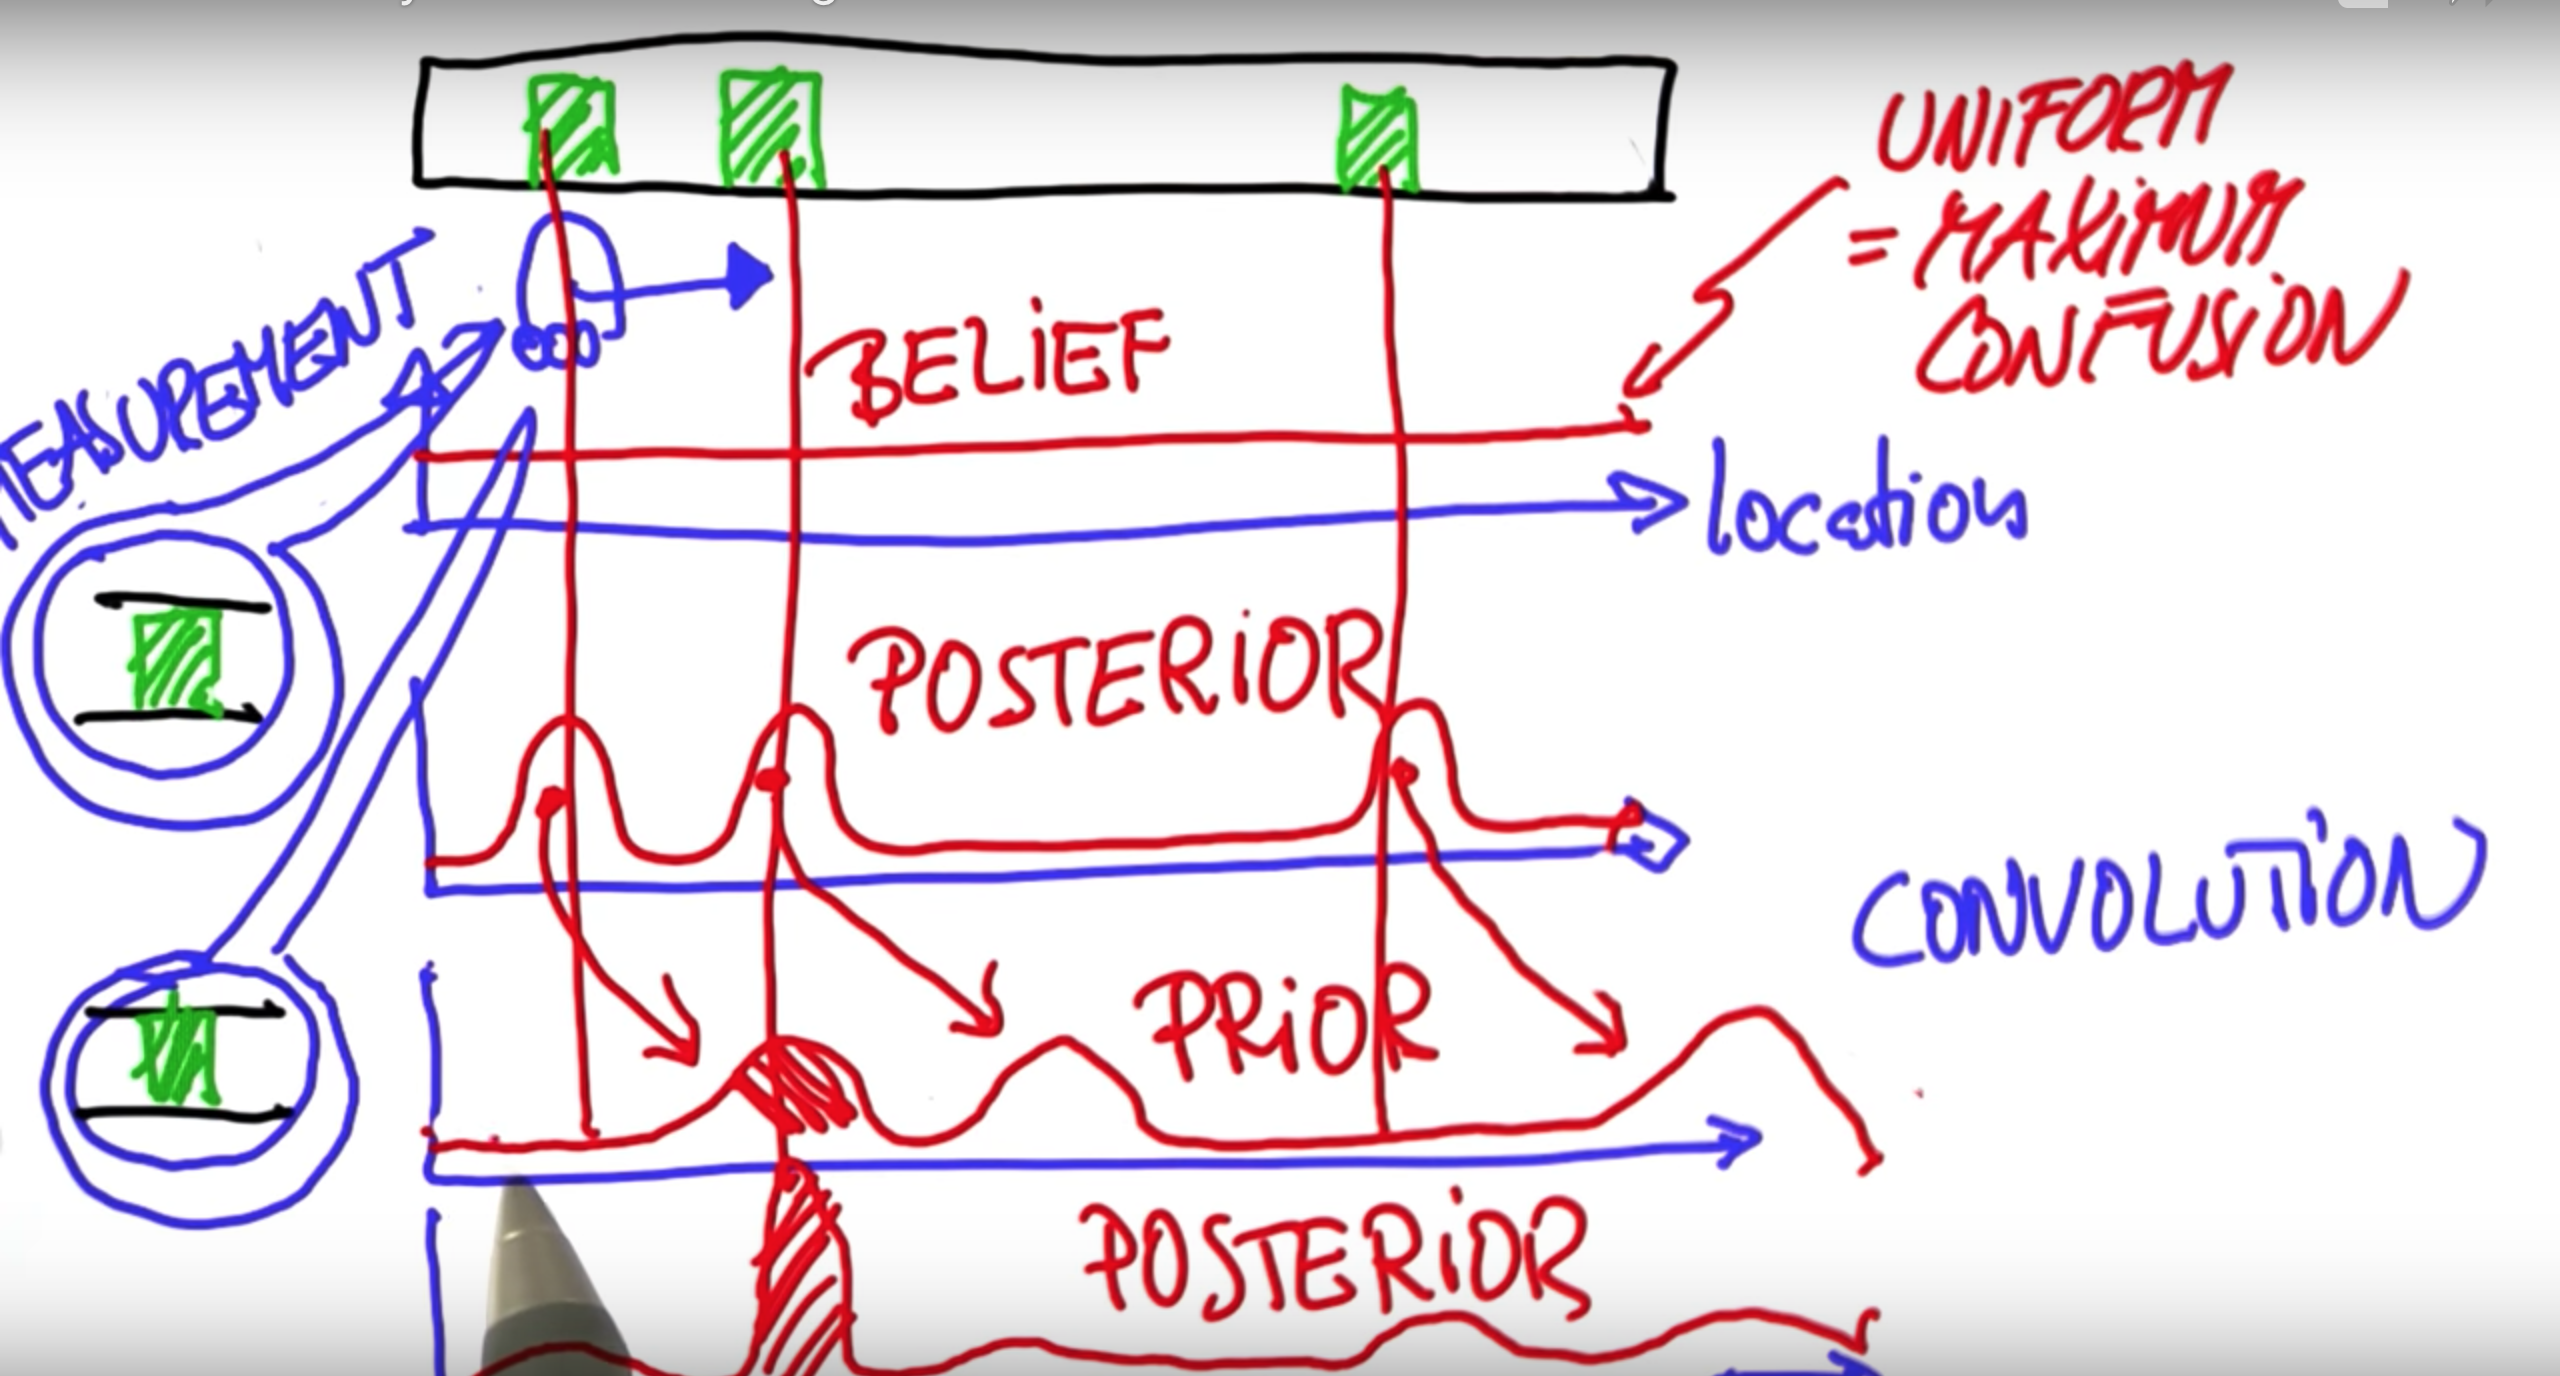 UNIFORM
= MAXIMUM
CONFUSION
MEASUREMENT
BELIEF
location
POSTERIOR
CONVOLUTION
PRIOR
POSTERIOR